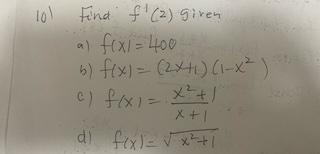 10) Find f'(2) given
a) f(x) = 400
b) f(x) = (2x+1)(1-x²)
c) f(x) = x²+1 / x+1
d) f(x) = √x²+1